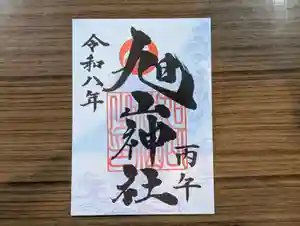 令和八年
旭山神社
丙午